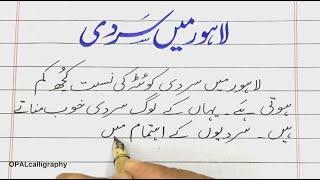 لاہور میں سَردی
لاہور میں سردی کوئٹہ کی نسبت کُچھ کم
ہوتی ہے۔ یہاں کے لوگ سردی خوب مناتے
ہیں۔ سردیوں کے اہتمام میں
OPALcalligraphy